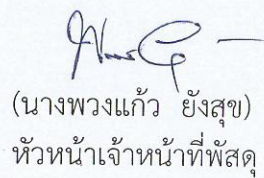 (นางพวงแก้ว ยังสุข)
หัวหน้าเจ้าหน้าที่พัสดุ